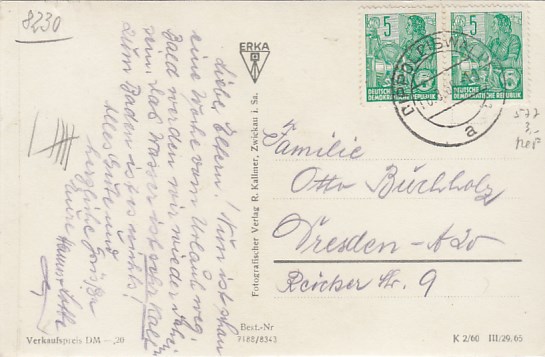 8230
Liebe Eltern! Nun ist schon
eine Woche vom Urlaub weg,
bald werden wir wieder daheim
sein. Das Wasser ist sehr kalt
zum Baden ist es nichts!
Alles Gute und
herzliche Grüße
Eure
ERKA
Fotografischer Verlag R. Kallmer, Zwickau i. Sa.
Best.-Nr
7188/8342
Verkaufspreis DM —,20
5
5
DEUTSCHE
DEMOKRATISCHE REPUBLIK
DEUTSCHE
DEMOKRATISCHE REPUBLIK
a
577
3,-
Familie
Otto Buchholz
Dresden-A20
Reicker Str. 9
K 2/60 III/29, 65